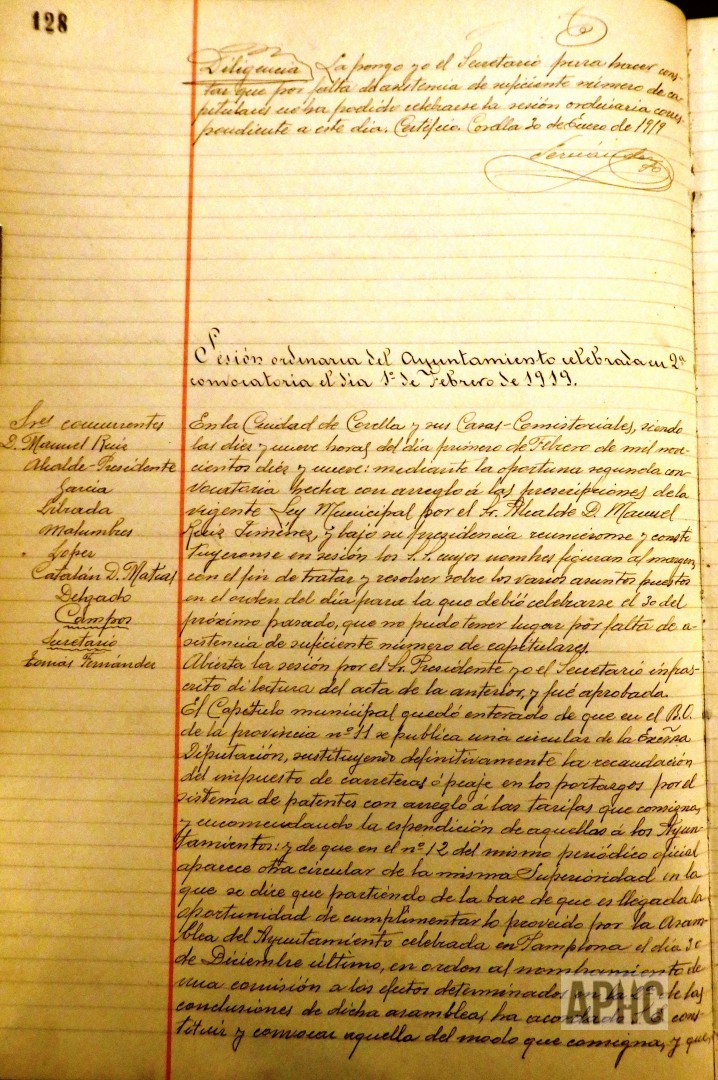 128
Diligencia La pongo yo el Secretario para hacer cons-
tar que por falta de asistencia de suficiente número de ca-
pitulares no ha podido celebrarse la sesión ordinaria corres-
pondiente a este día. Certifico. Corella 30 de Enero de 1919
Sesión ordinaria del Ayuntamiento celebrada en 2ª
convocatoria el día 1º de Febrero de 1919.
Sres concurrentes
D. Manuel Ruiz
Alcalde-Presidente
Garcia
Librada
Malumbres
Lopez
Catalán D. Matias
Delgado
Campos
Secretario
Tomás Fernández
En la Ciudad de Corella y sus Casas-Consistoriales, siendo
las diez y nueve horas del día primero de Febrero de mil nove-
cientos diez y nueve: mediante la oportuna segunda con-
vocatoria hecha con arreglo á las prescripciones de la
vigente Ley Municipal por el Sr. Alcalde D. Manuel
Ruiz Jiménez, y bajo su presidencia reuniéronse y consti-
tuyeronse en sesión los S.S. cuyos nombres figuran al margen,
con el fin de tratar y resolver sobre los varios asuntos puestos
en el orden del día para la que debió celebrarse el 30 del
próximo pasado, que no pudo tener lugar por falta de a-
sistencia de suficiente número de capitulares.
Abierta la sesión por el Sr. Presidente yo el Secretario infras-
crito di lectura del acta de la anterior, y fué aprobada.
El Capítulo municipal quedó enterado de que en el B.O.
de la provincia nº 11 se publica una circular de la Excma
Diputación, sustituyendo definitivamente la recaudación
del impuesto de carreteras ó peaje en los portazgos por el
sistema de patentes con arreglo á las tarifas que consigna,
y encomendando la espendición de aquellas á los Ayun-
tamientos: y de que en el nº 12 del mismo periódico oficial
aparece otra circular de la misma Superioridad en la
que se dice que partiendo de la base de que es llegada la
oportunidad de cumplimentar lo proveido por la Asam-
blea del Ayuntamiento celebrada en Pamplona el día 30
de Diciembre último, en orden al nombramiento de
una comisión a los efectos determinados de las
conclusiones de dicha asamblea, ha acordado cons-
tituir y convocar aquella del modo que consigna, y que
APHC